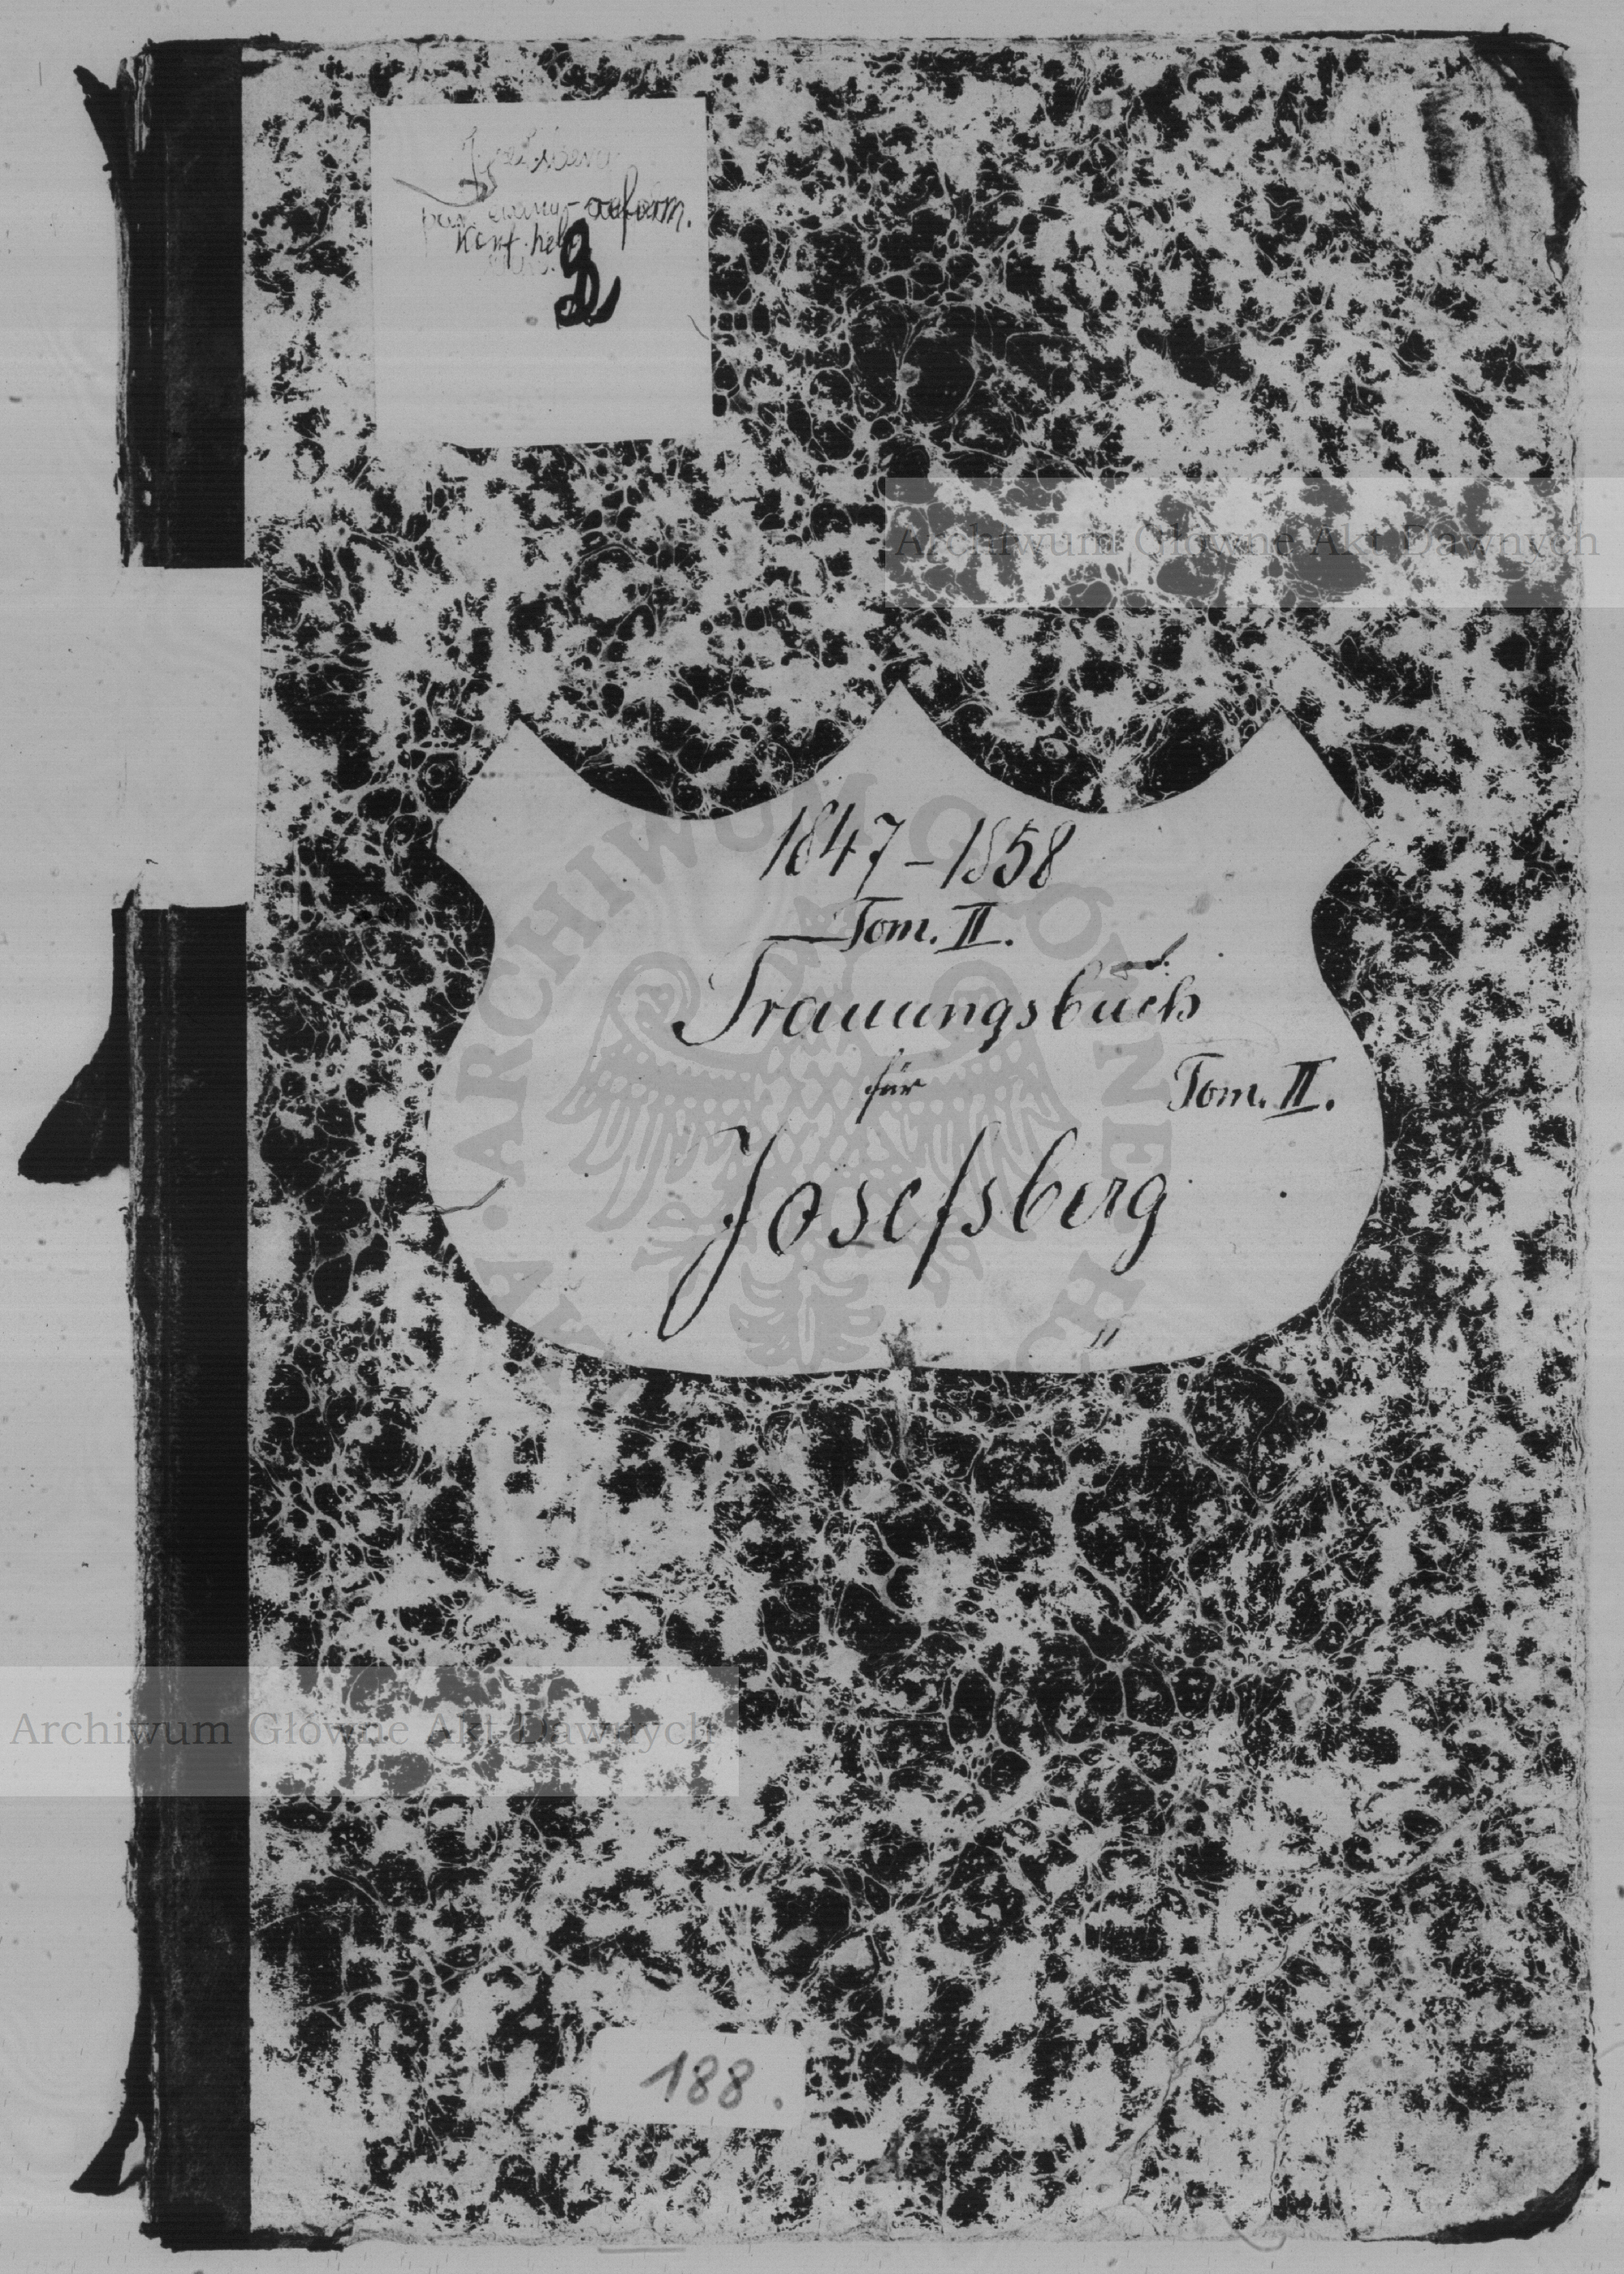 Josefsberg
par. ewang-reform.
Konf. hel
2
Archiwum Główne Akt Dawnych
1847-1858
Tom. II.
Trauungsbuch
für
Tom. II.
Josefsberg
Archiwum Główne Akt Dawnych
188.